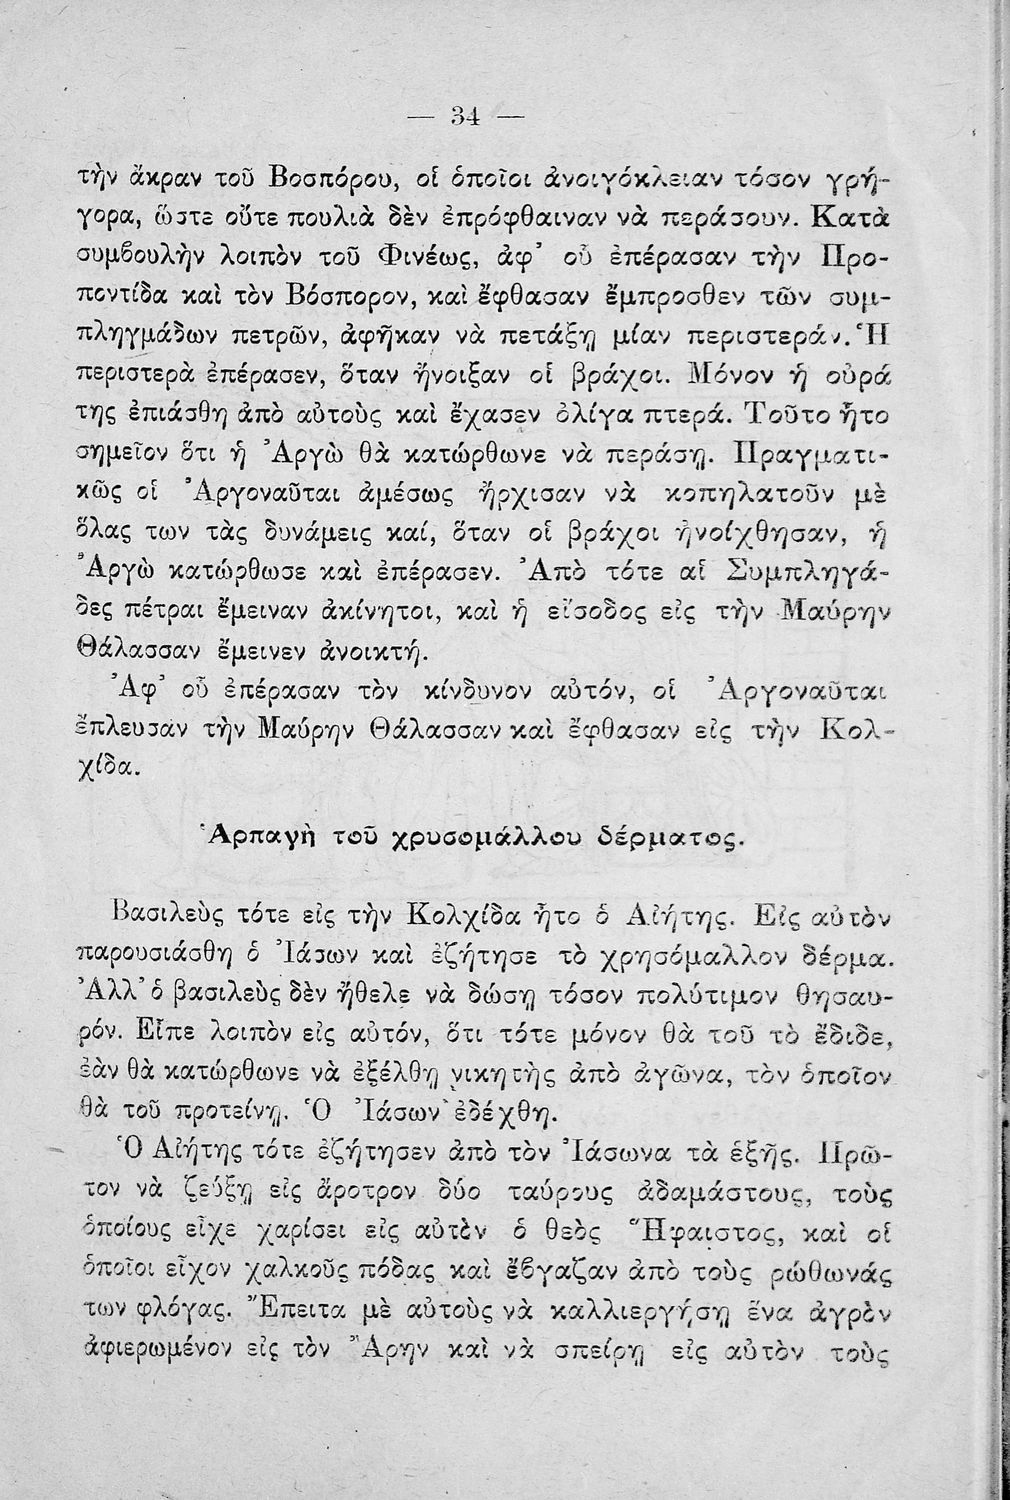 — 34 —
τὴν ἄκραν τοῦ Βοσπόρου, οἱ ὁποῖοι ἀνοιγόκλειαν τόσον γρή-
γορα, ὥστε οὔτε πουλιὰ δὲν ἐπρόφθαιναν νὰ περάσουν. Κατὰ
συμβουλὴν λοιπὸν τοῦ Φινέως, ἀφ᾽ οὗ ἐπέρασαν τὴν Προ-
ποντίδα καὶ τὸν Βόσπορον, καὶ ἔφθασαν ἔμπροσθεν τῶν συμ-
πληγμάδων πετρῶν, ἀφῆκαν νὰ πετάξῃ μίαν περιστεράν. Ἡ
περιστερὰ ἐπέρασεν, ὅταν ἤνοιξαν οἱ βράχοι. Μόνον ἡ οὐρά
της ἐπιάσθη ἀπὸ αὐτοὺς καὶ ἔχασεν ὀλίγα πτερά. Τοῦτο ἦτο
σημεῖον ὅτι ἡ Ἀργὼ θὰ κατώρθωνε νὰ περάσῃ. Πραγματι-
κῶς οἱ Ἀργοναῦται ἀμέσως ἤρχισαν νὰ κοπηλατοῦν μὲ
ὅλας των τὰς δυνάμεις καί, ὅταν οἱ βράχοι ἠνοίχθησαν, ἡ
Ἀργὼ κατώρθωσε καὶ ἐπέρασεν. Ἀπὸ τότε αἱ Συμπληγά-
δες πέτραι ἔμειναν ἀκίνητοι, καὶ ἡ εἴσοδος εἰς τὴν Μαύρην
Θάλασσαν ἔμεινεν ἀνοικτή.
Ἀφ᾽ οὗ ἐπέρασαν τὸν κίνδυνον αὐτόν, οἱ Ἀργοναῦται
ἔπλευσαν τὴν Μαύρην Θάλασσαν καὶ ἔφθασαν εἰς τὴν Κολ-
χίδα.
Ἁρπαγὴ τοῦ χρυσομάλλου δέρματος.
Βασιλεὺς τότε εἰς τὴν Κολχίδα ἦτο ὁ Αἰήτης. Εἰς αὐτὸν
παρουσιάσθη ὁ Ἰάσων καὶ ἐζήτησε τὸ χρησόμαλλον δέρμα.
Ἀλλ᾽ ὁ βασιλεὺς δὲν ἤθελε νὰ δώσῃ τόσον πολύτιμον θησαυ-
ρόν. Εἶπε λοιπὸν εἰς αὐτόν, ὅτι τότε μόνον θὰ τοῦ τὸ ἔδιδε,
ἐὰν θὰ κατώρθωνε νὰ ἐξέλθῃ νικητὴς ἀπὸ ἀγῶνα, τὸν ὁποῖον
θὰ τοῦ προτείνῃ. Ὁ Ἰάσων ἐδέχθη.
Ὁ Αἰήτης τότε ἐζήτησεν ἀπὸ τὸν Ἰάσωνα τὰ ἑξῆς. Πρῶ-
τον νὰ ζεύξῃ εἰς ἄροτρον δύο ταύρους ἀδαμάστους, τοὺς
ὁποίους εἶχε χαρίσει εἰς αὐτὸν ὁ θεὸς Ἥφαιστος, καὶ οἱ
ὁποῖοι εἶχον χαλκοῦς πόδας καὶ ἔβγαζαν ἀπὸ τοὺς ρώθωνάς
των φλόγας. Ἔπειτα μὲ αὐτοὺς νὰ καλλιεργήσῃ ἕνα ἀγρὸν
ἀφιερωμένον εἰς τὸν Ἄρην καὶ νὰ σπείρῃ εἰς αὐτὸν τοὺς